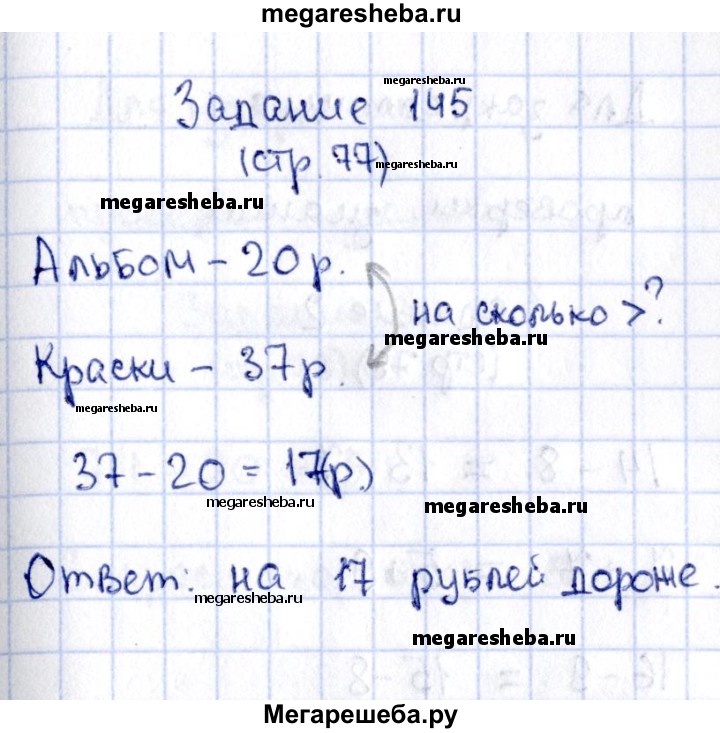 megaresheba.ru
megaresheba.ru
Задание 145
(стр. 77) megaresheba.ru
megaresheba.ru
Альбом – 20 р.
на сколько >?
megaresheba.ru
Краски – 37 р.
megaresheba.ru
37 – 20 = 17(р.)
megaresheba.ru megaresheba.ru
Ответ: на 17 рублей дороже.
megaresheba.ru
megaresheba.ru
Мегарешеба.ру